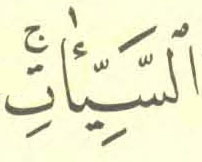 ٱلسَّيِّـَٔاتِۚ